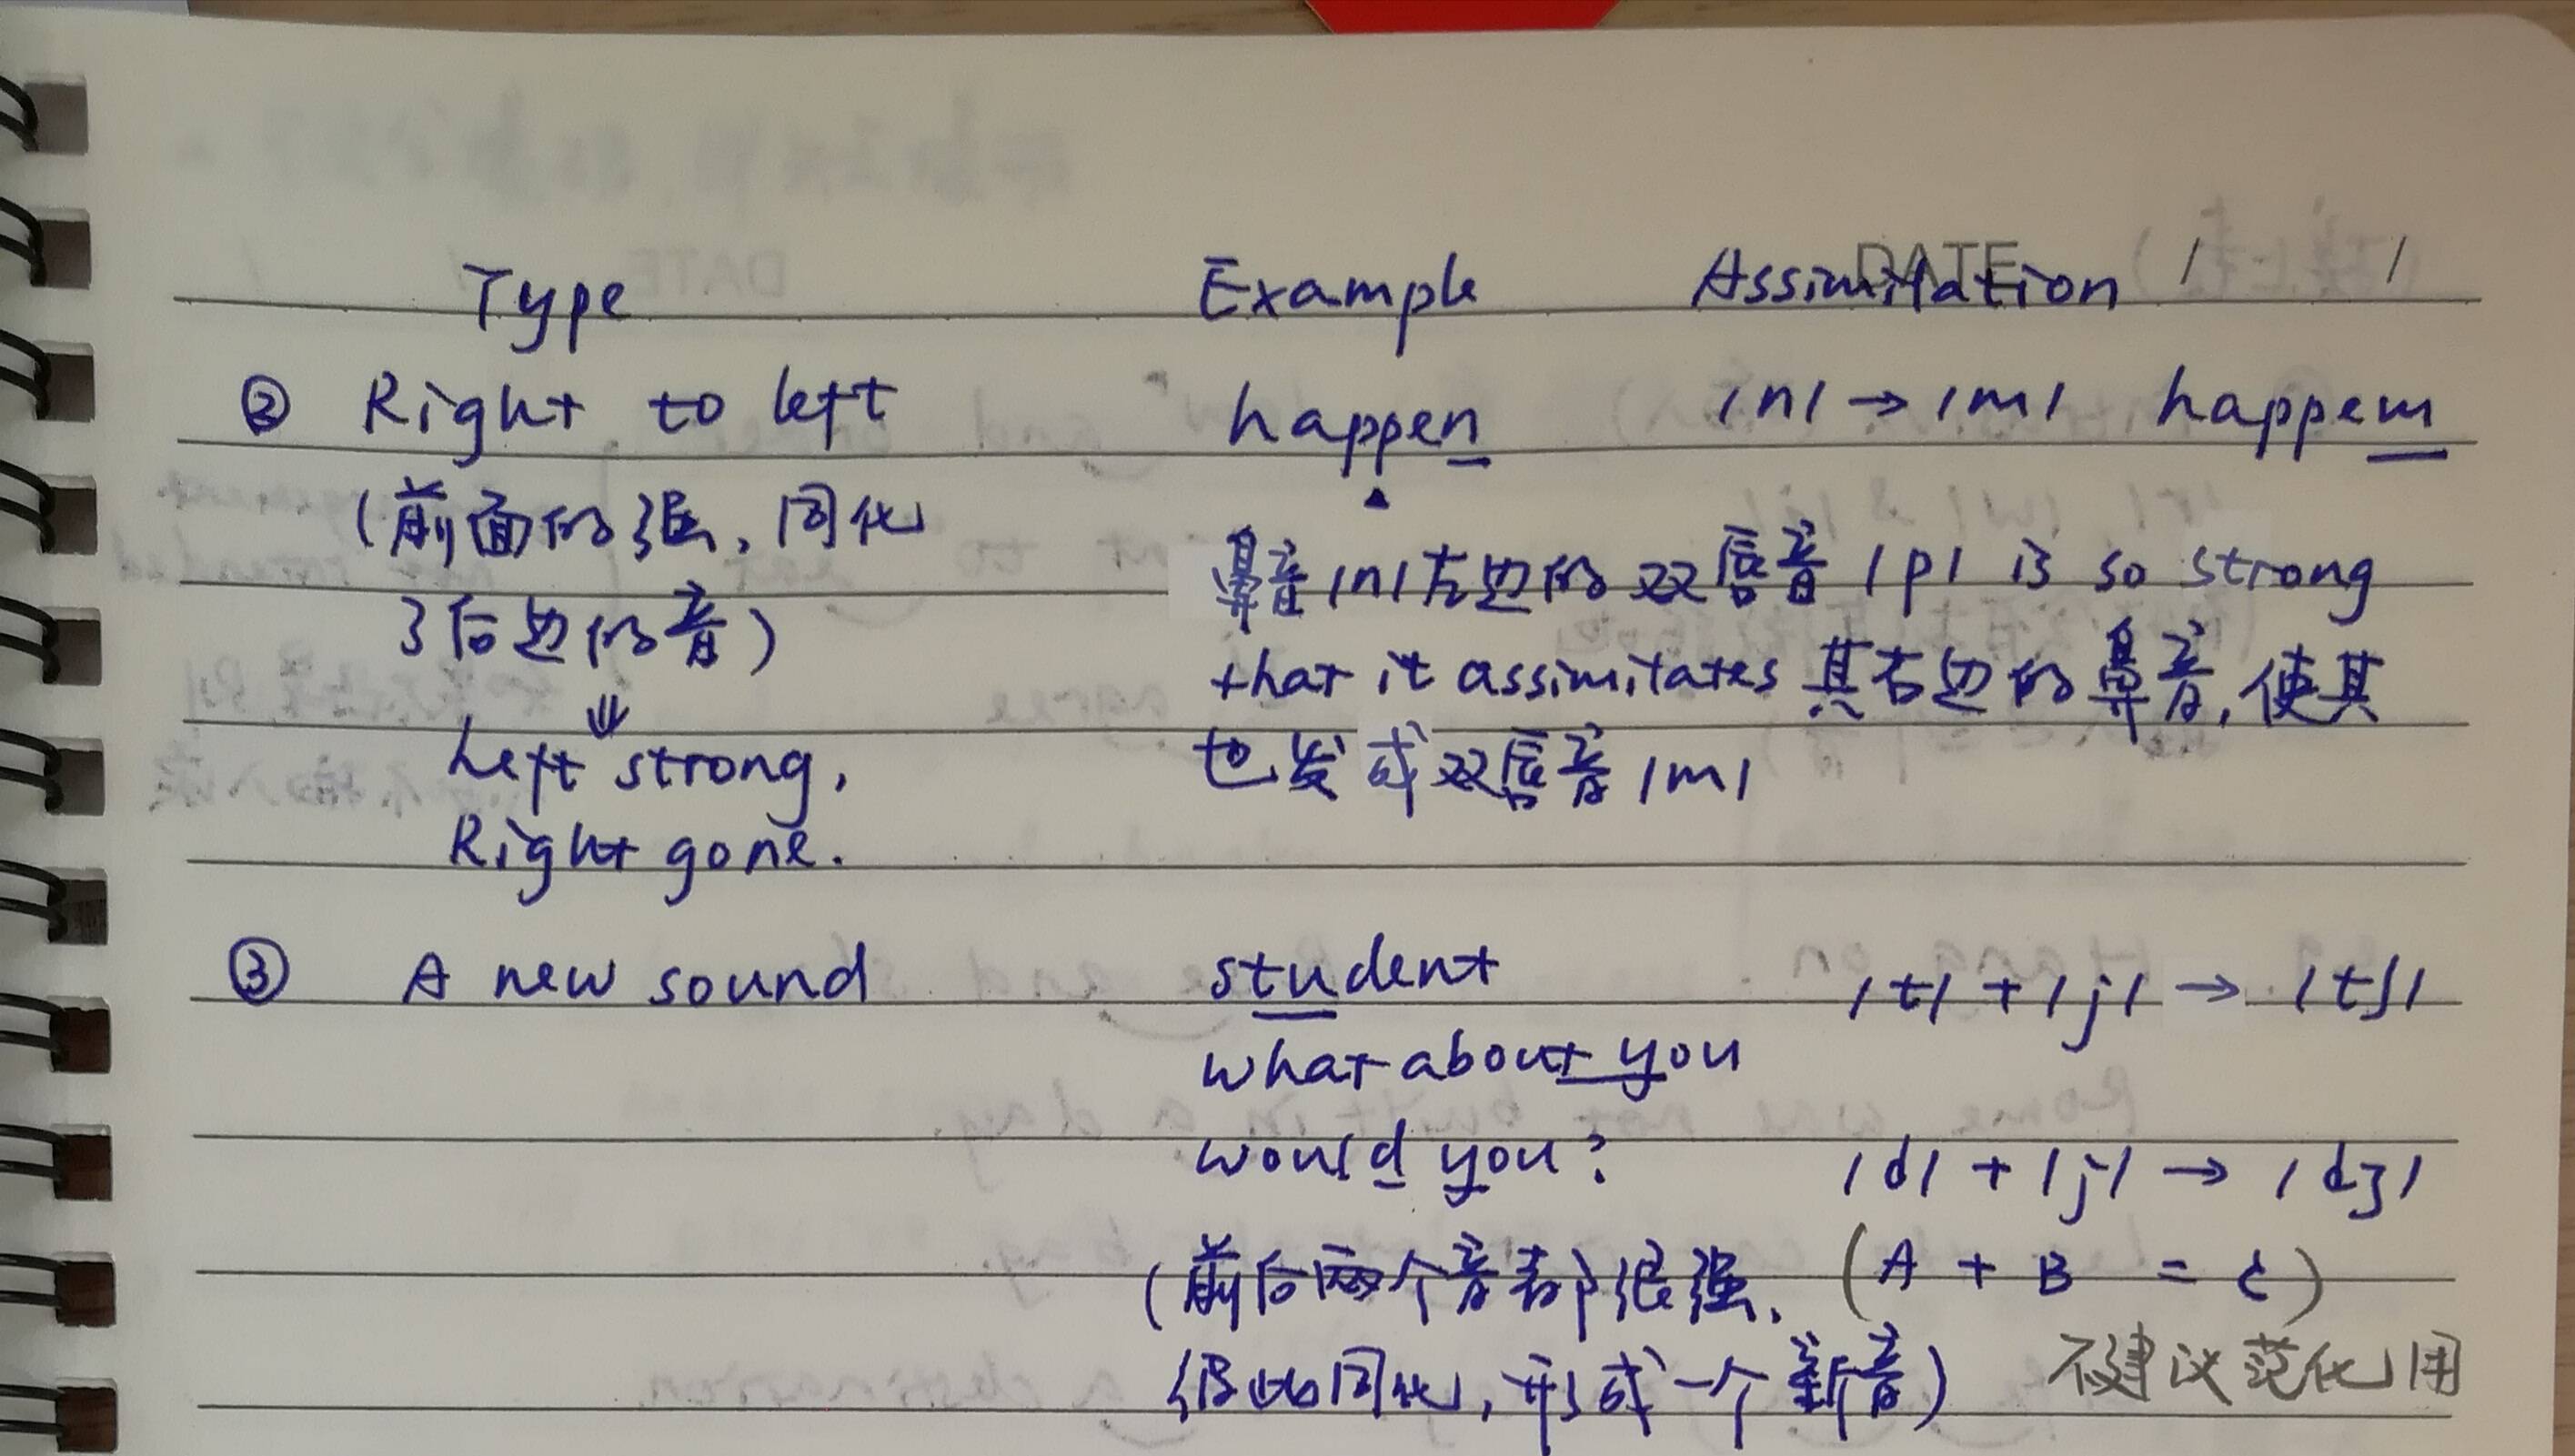 DATE / /
Type Example Assimilation
② Right to left happen /n/ → /m/ happem
(前面的强、同化
了后边的音)
⇓
Left strong,
Right gone.
鼻音/n/左边的双唇音/p/ is so strong
that it assimilates 其右边的鼻音,使其
也发成双唇音/m/
③ A new sound student /t/ + /j/ → /tʃ/
what about you
would you? /d/ + /j/ → /dʒ/
(前后两个音都很强、 (A + B = C)
彼此同化,形成一个新音) 不建议范化用